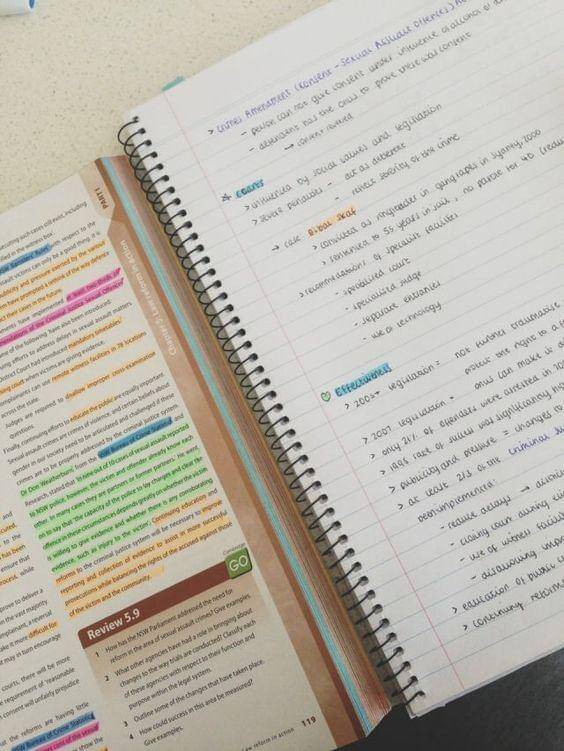 PART I
Chapter 5: Law reform in action
secuting such cases still exist, including
with respect to the
assault victims can only be a good thing. It is
and pressure exerted by the various
have prompted a rethink of the way
their cases in the future.
have implemented at least two thirds of
of the Criminal Justice Sexual Offences
of the following have also been introduced:
ing efforts to addess delays in sexual assault matters
District Court has introduced mandatory timetables
court when victims are giving evidence.
complainants can use remote witness facilities in 78 locations
across the state.
Judges are required to disallow improper cross-examination
questions.
Finally, continuing efforts to educate the public are equally important.
Sexual assault crimes are crimes of violence, and certain beliefs about
gender in our society need to be articulated and challenged if these
crimes are to be properly addressed by the criminal justice system.
Dr Don Weatherburn, from the NSW Bureau of Crime Statistics and
Research, stated that 'In nine out of 10 cases of sexual assault reported
to NSW police, however, the victim and offender already know each
other. In many cases they are partners or former partners.' He went
on to say that 'the capacity of the police to lay charges and clear the
offence in these circumstances depends greatly on whether the victim
is willing to give evidence and whether there is any corroborating
evidence, such as injury to the victim'. Continuing education and
reforms to the criminal justice system will be necessary to improve
reporting and collection of evidence to assist in more successful
prosecutions while balancing the rights of the accused against those
of the victim and the community.
GO
Review 5.9
1 How has the NSW Parliament addressed the need for
reform in the area of sexual assault crimes? Give examples.
2 What other agencies have had a role in bringing about
changes to the way trials are conducted? Classify each
of these agencies with respect to their function and
purpose within the legal system.
3 Outline some of the changes that have taken place.
4 How could success in this area be measured?
Give examples.
law reform in action 119
prove to deliver a
the vast majority
complainant, a reversal
make it more difficult for
in turn may encourage
courts, there will be more
requirement of 'reasonable
consent will unfairly prejudice
that the reforms are having little
NSW Bureau of Crime Statistics
> Crimes Amendment (Consent - Sexual Assault Offences) A
- person can not give consent under influence of alcohol or
- defendant has the onus to prove there was consent
→ consent revoked
* Courts
> influenced by social values and legislation
> severe penalties - act as deterrent
- reflect severity of the crime
→ case Bilal Skaf
> convicted as ringleader in gang rapes in Sydney, 2000
> sentenced to 55 years in jail, no parole for 40 (reduc
> recommendations of specialist
- specialised court
- specialised judge
- separate entrances
- use of technology
Effectiveness
> legislation = not further traumatise
> 2007 legislation = protect the right to a
onus can make it di
> only 21% of offenders were arrested in 20
> 1995 rate of success was significantly hig
> publicity and pressure = changes to
> at least 2/3 of the Criminal Ju
been implemented:
- reduce delays →
- closing court during evi
- use of witness facilit
- disallowing imp
> education of public
> continuing reform